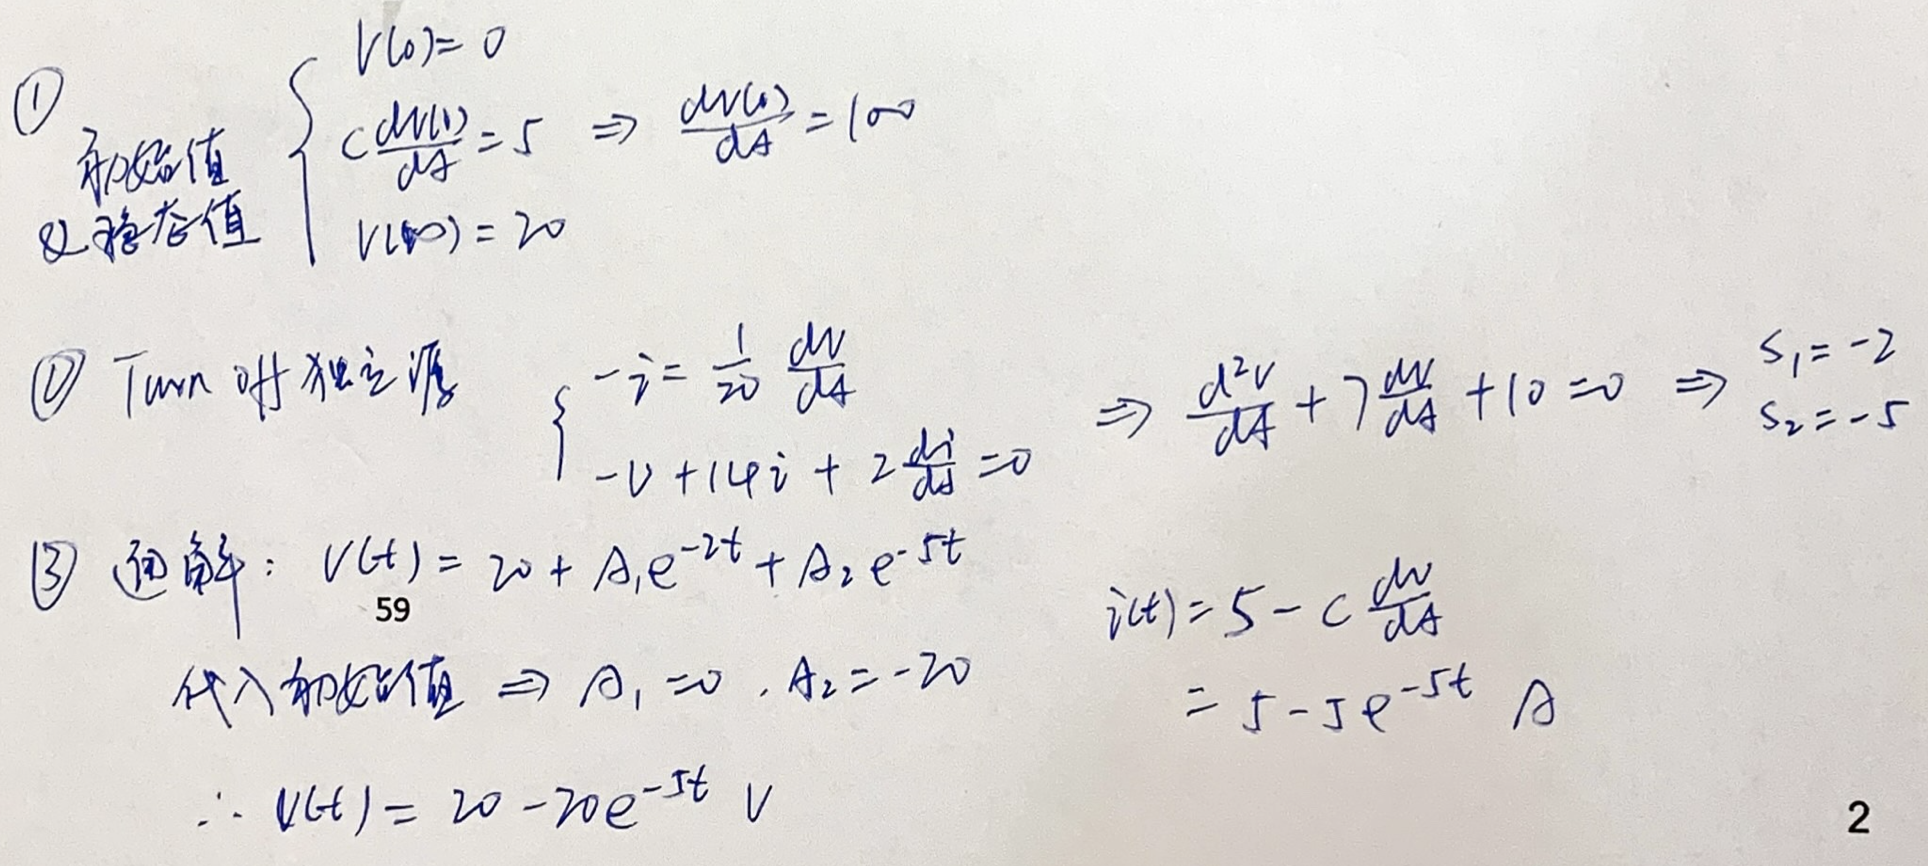 ① 初始值 & 稳态值
V(0)=0
C dv(0)/dt = 5 ⇒ dv(0)/dt = 100
V(∞) = 20
② Turn off 独立源
-i = 1/20 dv/dt
-v + 14i + 2 di/dt = 0
⇒ d²v/dt + 7 dv/dt + 10 = 0 ⇒ s₁ = -2
s₂ = -5
③ 通解: V(t) = 20 + A₁e^-2t + A₂e^-5t
59
代入初始值 ⇒ A₁ = 0 . A₂ = -20
∴ V(t) = 20 - 20e^-5t V
i(t) = 5 - C dv/dt
= 5 - 5e^-5t A
2